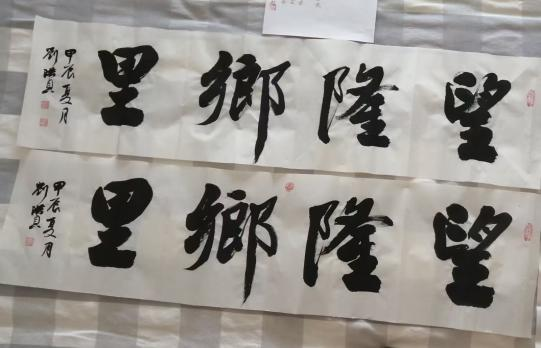 望隆鄉里
甲辰夏月
劉
望隆鄉里
甲辰夏月
劉